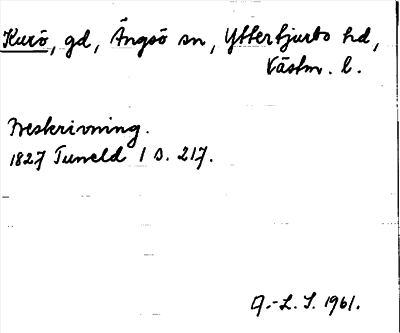 Kurö, gd, Ängsö sn, Ytterbjurbo hd,
Västm. l.
Beskrivning.
1827 Tuneld 1 s. 217.
A.-L. S. 1961.